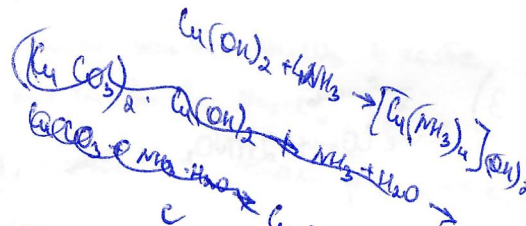 Cu(OH)2 + 4NH3 → [Cu(NH3)4](OH)2
(CuCO3)2 · Cu(OH)2 + NH3 + H2O →
NH3·H2O →